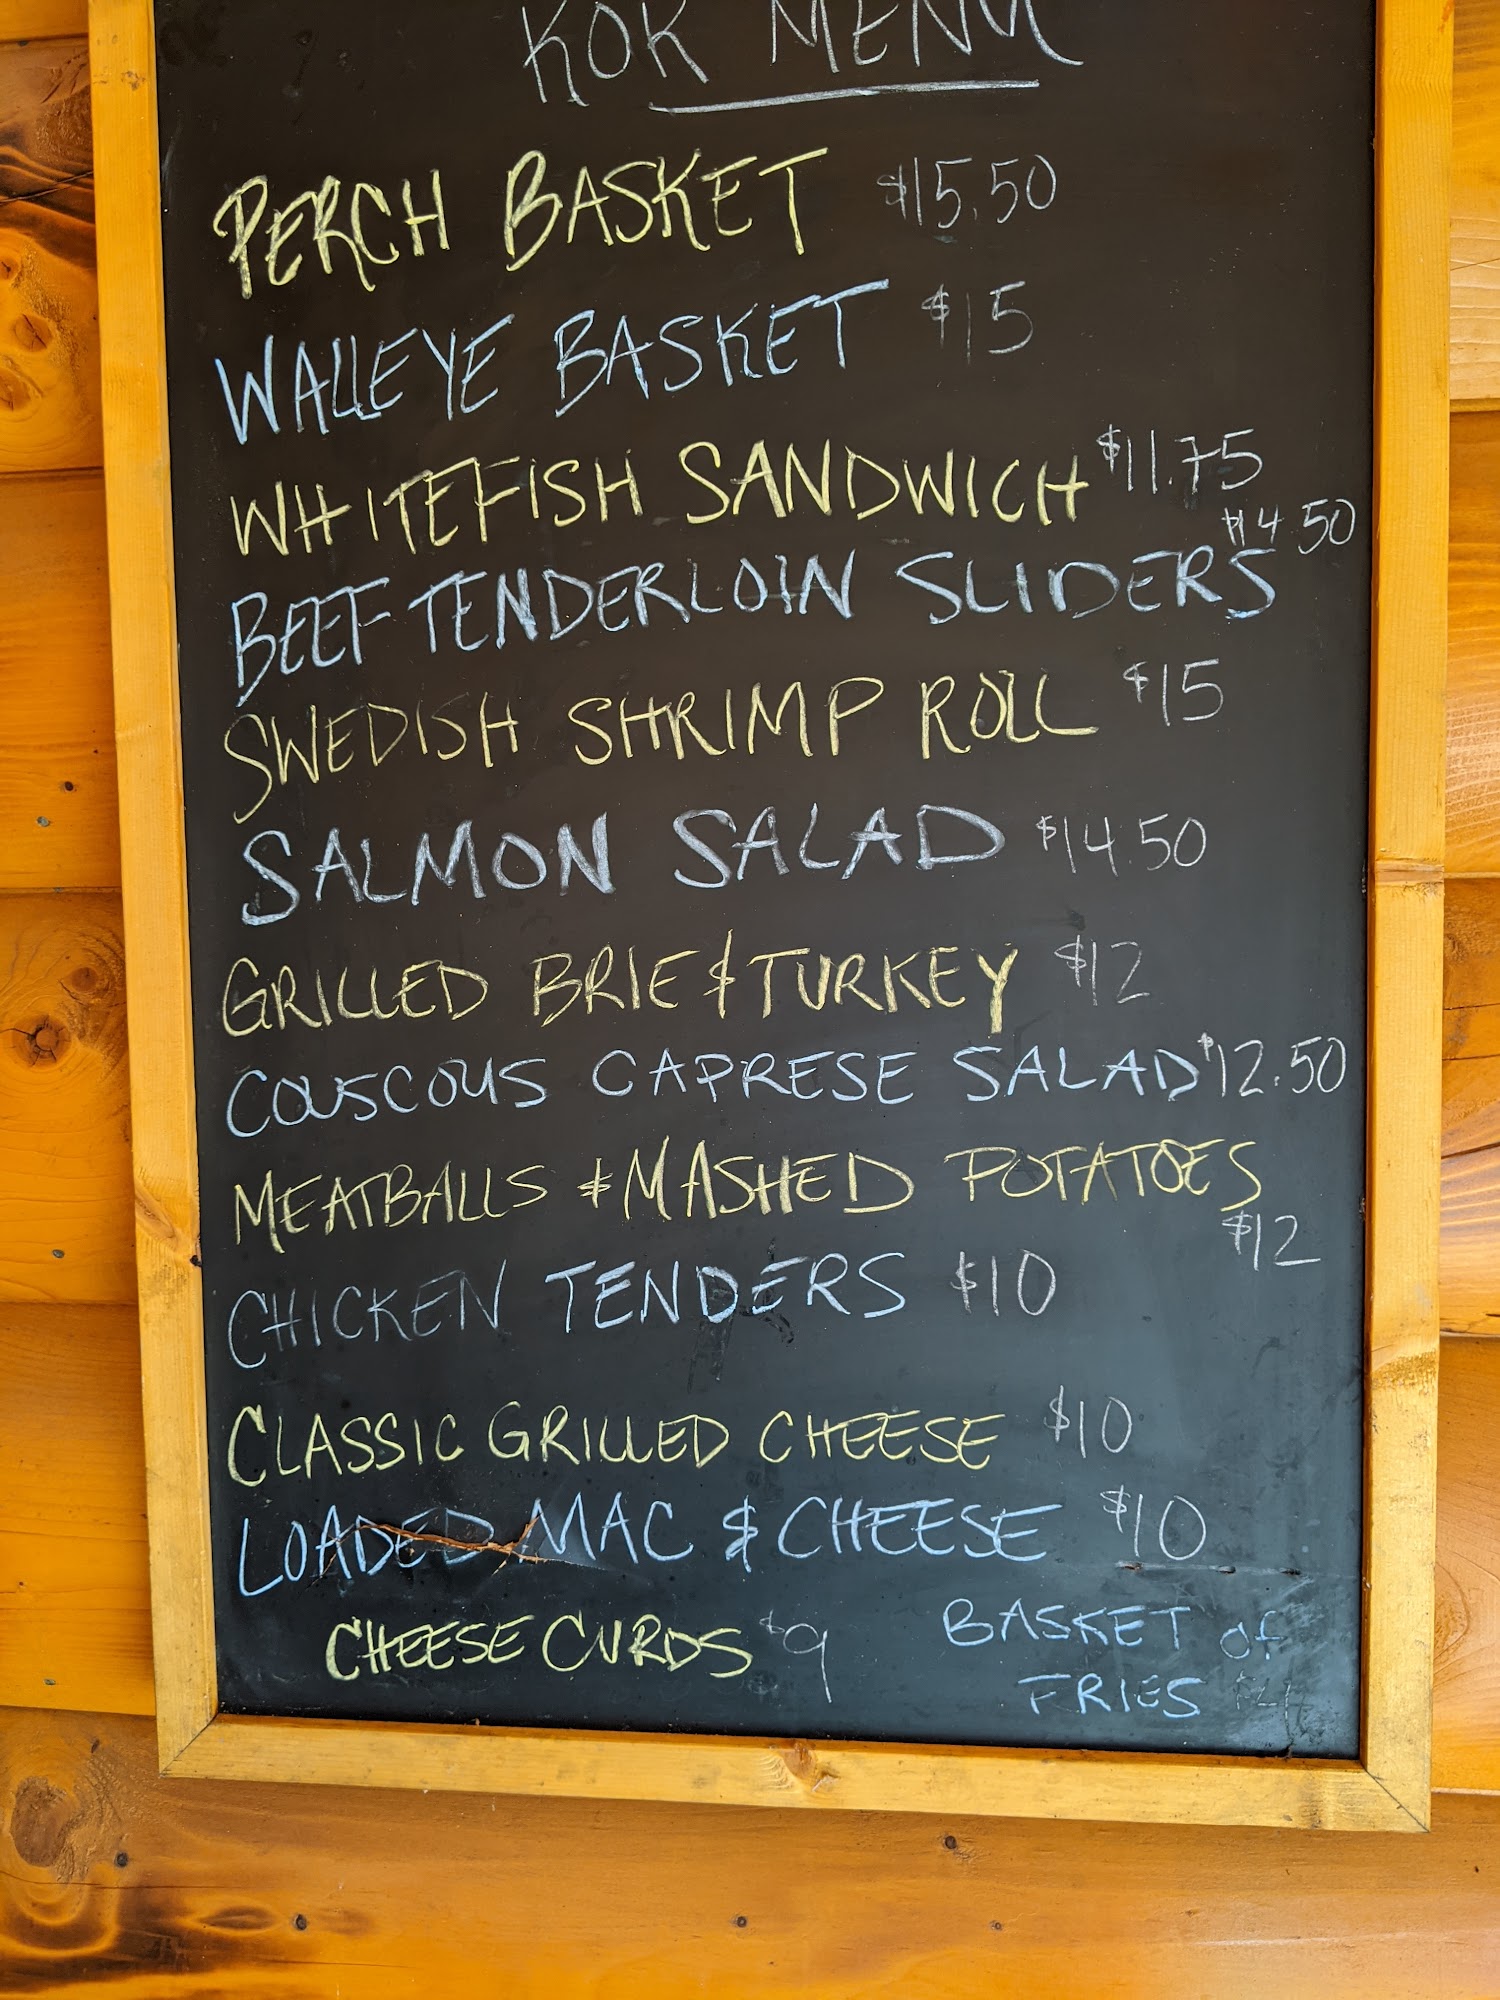 KOK MENU
PERCH BASKET $15.50
WALLEYE BASKET $15
WHITEFISH SANDWICH $11.75
$14.50
BEEF TENDERLOIN SLIDERS
SWEDISH SHRIMP ROLL $15
SALMON SALAD $14.50
GRILLED BRIE & TURKEY $12
COUSCOUS CAPRESE SALAD $12.50
MEATBALLS & MASHED POTATOES
$12
CHICKEN TENDERS $10
CLASSIC GRILLED CHEESE $10
LOADED MAC & CHEESE $10
CHEESE CURDS $9
BASKET of
FRIES